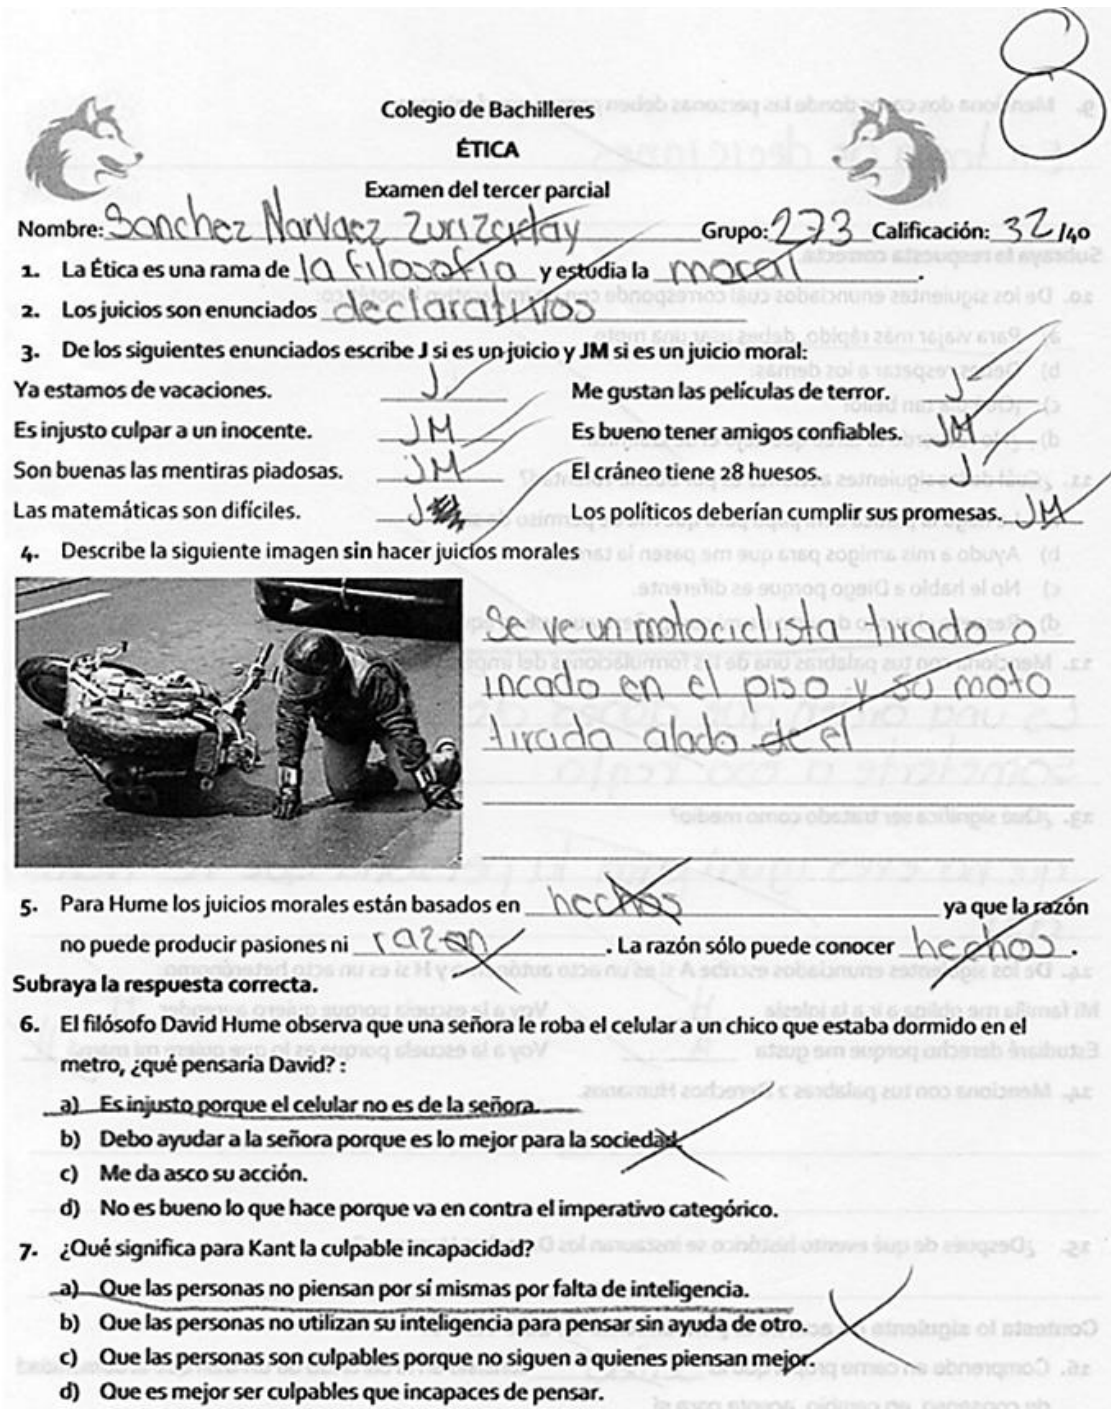 8
Colegio de Bachilleres
ÉTICA
Examen del tercer parcial
Nombre: Sanchez Narvaez Zurizaday Grupo: 273 Calificación: 32 /40
1. La Ética es una rama de la filosofia y estudia la moral.
2. Los juicios son enunciados declarativos
3. De los siguientes enunciados escribe J si es un juicio y JM si es un juicio moral:
Ya estamos de vacaciones. J Me gustan las películas de terror. J
Es injusto culpar a un inocente. JM Es bueno tener amigos confiables. JM
Son buenas las mentiras piadosas. JM El cráneo tiene 28 huesos. J
Las matemáticas son difíciles. J Los políticos deberían cumplir sus promesas. JM
4. Describe la siguiente imagen sin hacer juicios morales
Se ve un motociclista tirado o
incado en el piso y su moto
tirada alado de el
5. Para Hume los juicios morales están basados en hechos ya que la razón
no puede producir pasiones ni razon. La razón sólo puede conocer hechos.
Subraya la respuesta correcta.
6. El filósofo David Hume observa que una señora le roba el celular a un chico que estaba dormido en el
metro, ¿qué pensaría David? :
a) Es injusto porque el celular no es de la señora.
b) Debo ayudar a la señora porque es lo mejor para la sociedad.
c) Me da asco su acción.
d) No es bueno lo que hace porque va en contra el imperativo categórico.
7. ¿Qué significa para Kant la culpable incapacidad?
a) Que las personas no piensan por sí mismas por falta de inteligencia.
b) Que las personas no utilizan su inteligencia para pensar sin ayuda de otro.
c) Que las personas son culpables porque no siguen a quienes piensan mejor.
d) Que es mejor ser culpables que incapaces de pensar.